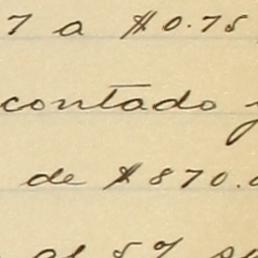 7 a $0.75
contado y
de $870.0
al 5%